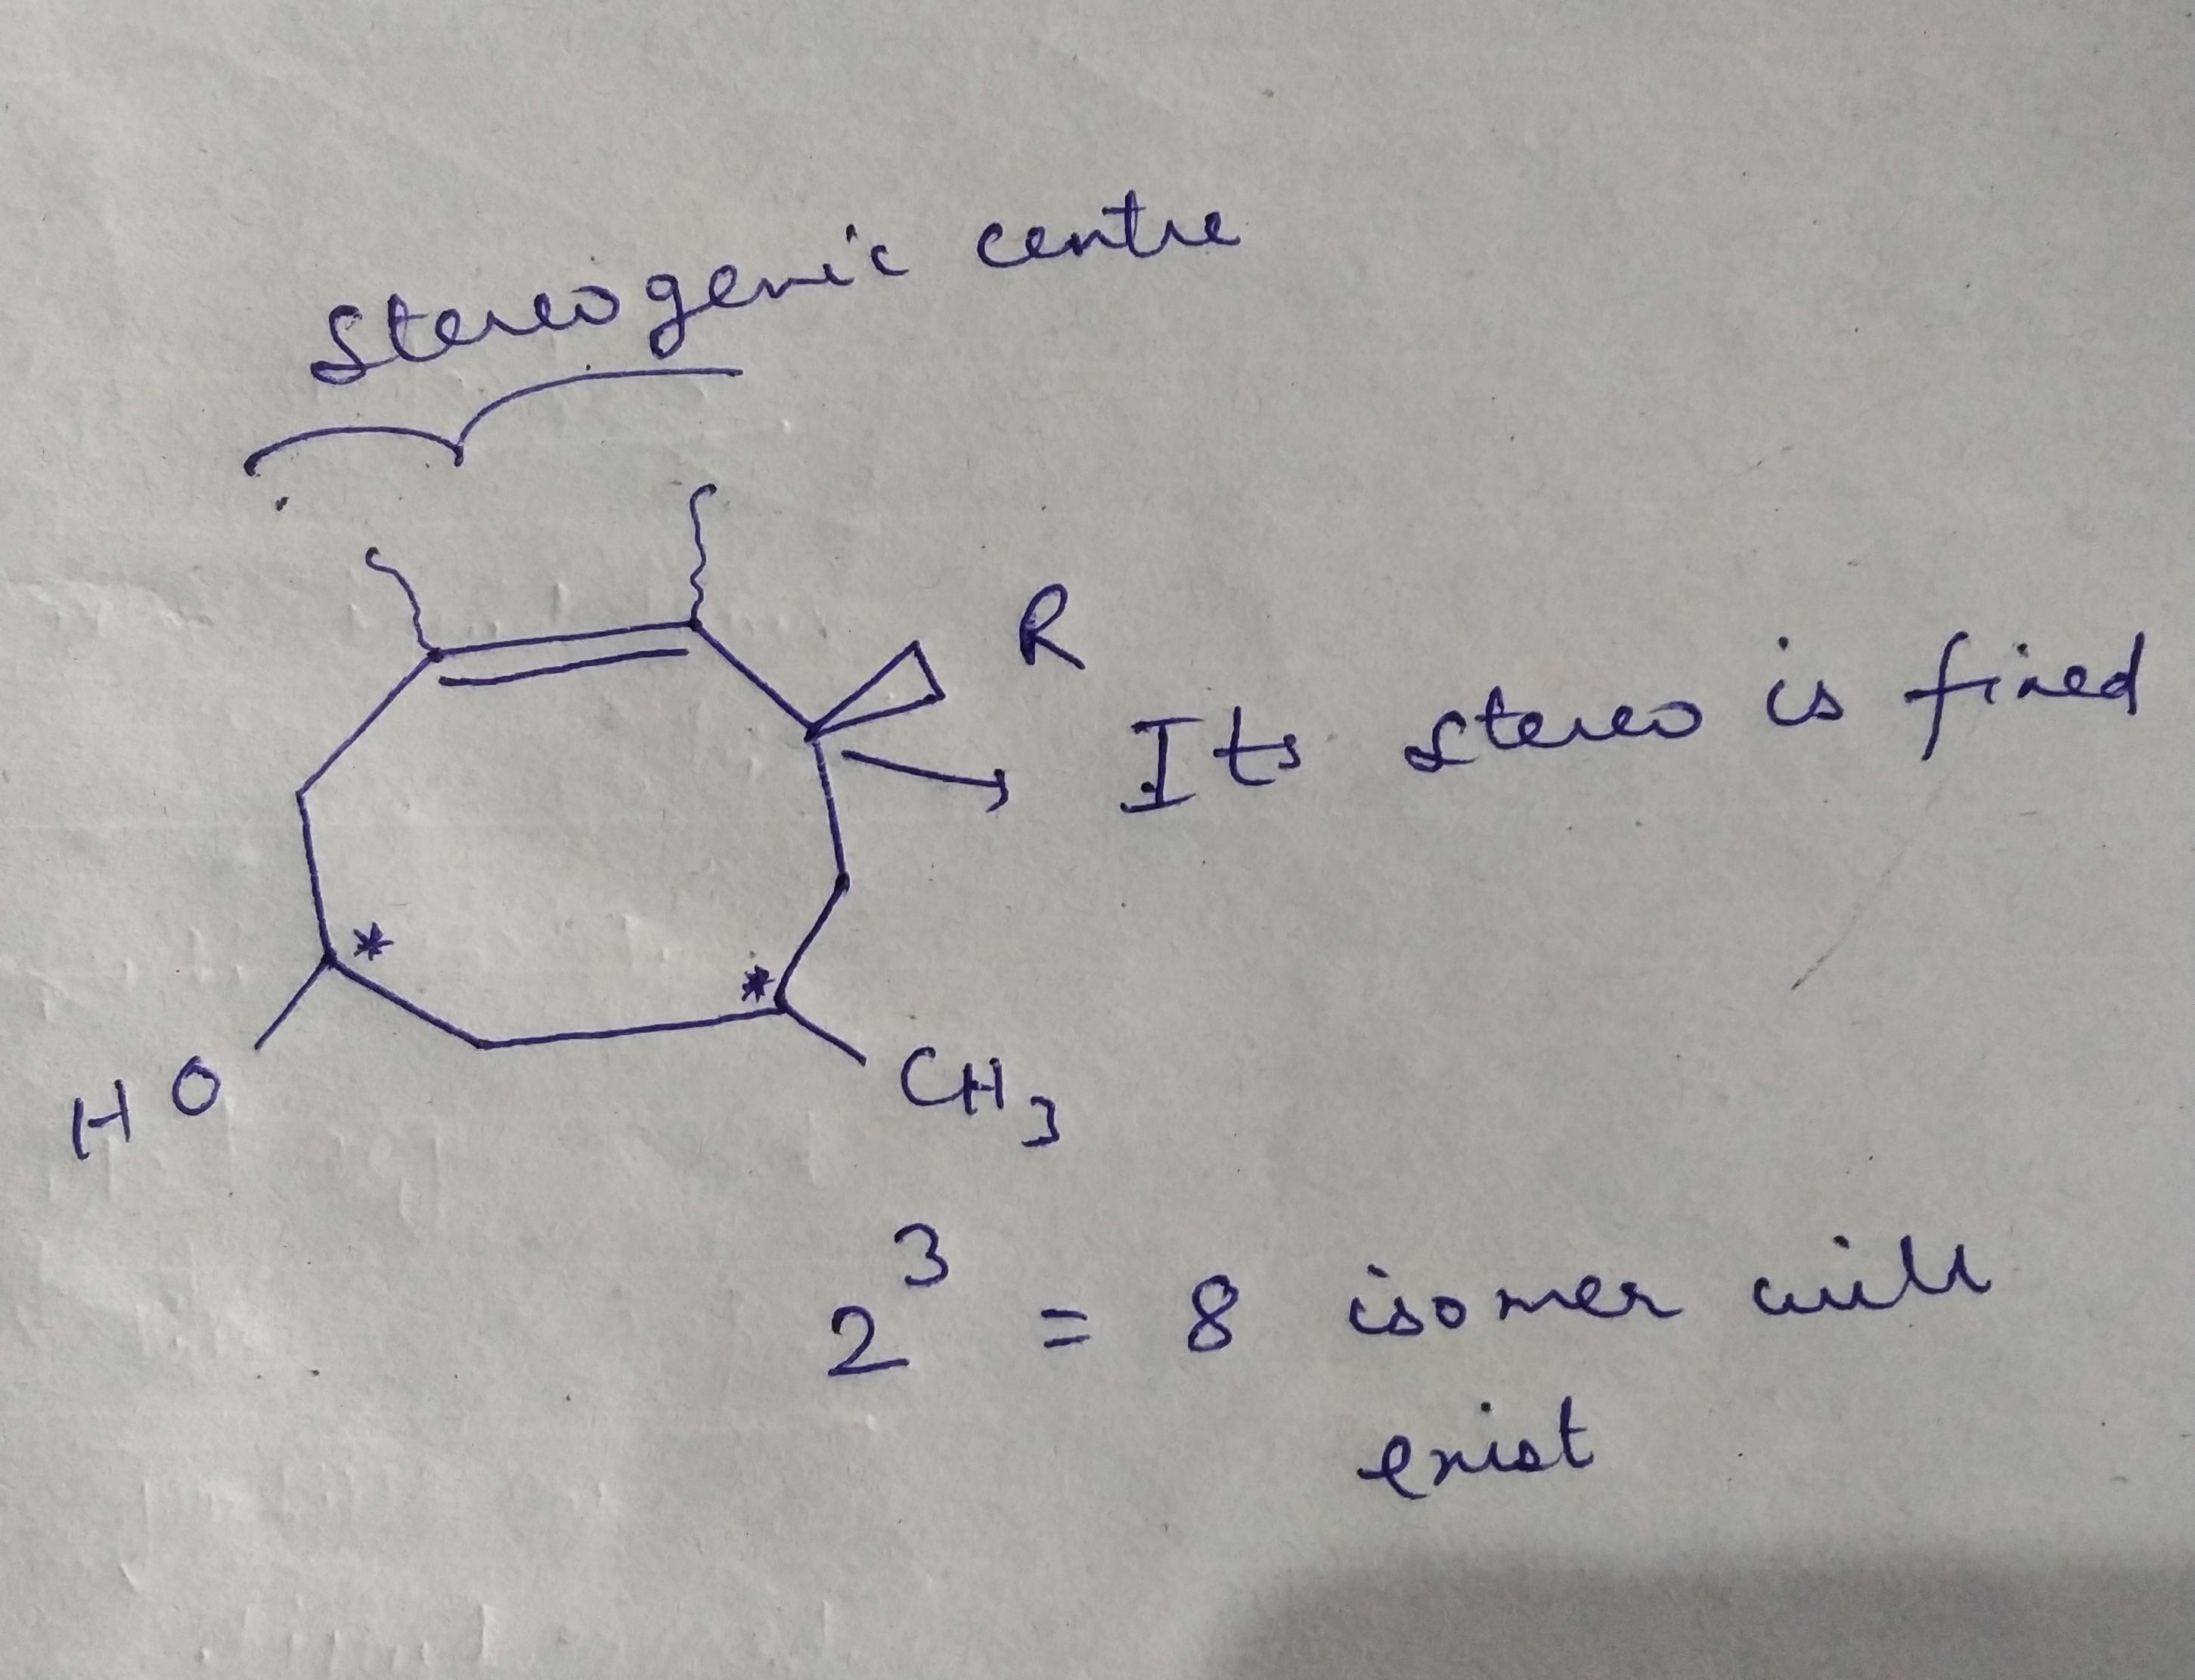 Stereogenic centre
R
Its stereo is fixed
*
*
HO
CH3
2^3 = 8 isomer will
exist